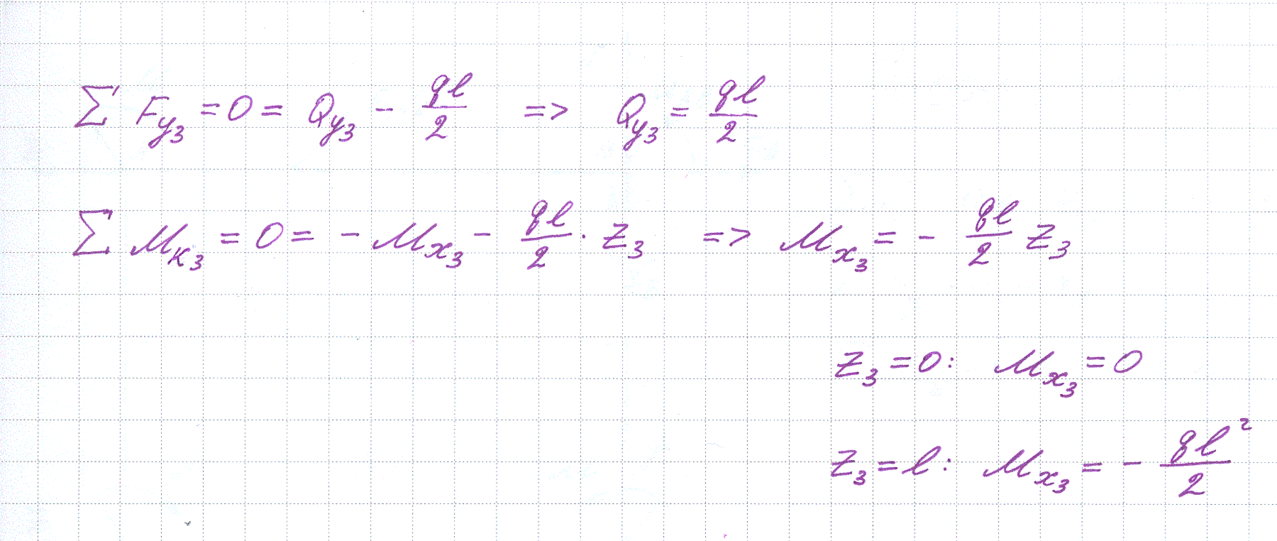 Σ F_y₃ = 0 = Q_y₃ - qℓ/2 => Q_y₃ = qℓ/2
Σ M_к₃ = 0 = - M_x₃ - qℓ/2 · z₃ => M_x₃ = - qℓ/2 z₃
z₃ = 0: M_x₃ = 0
z₃ = ℓ: M_x₃ = - qℓ²/2